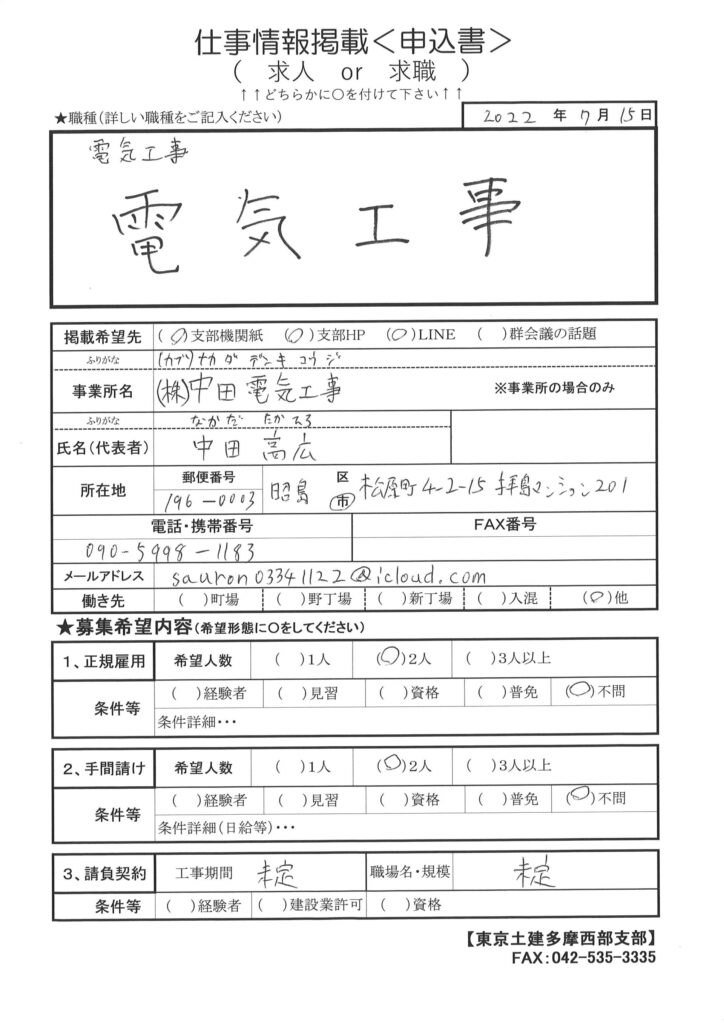 仕事情報掲載<申込書>
( 求人 or 求職 )
↑↑どちらかに○を付けて下さい↑↑
★職種(詳しい職種をご記入ください)
2022 年 7 月 15 日
電気工事
電気工事
掲載希望先 (○)支部機関紙 (○)支部HP (○)LINE ( )群会議の話題
ふりがな (カブ)ナカダ デンキ コウジ
事業所名 (株)中田電気工事 ※事業所の場合のみ
ふりがな なかだ たかひろ
氏名(代表者) 中田 高広
所在地 郵便番号 196-0003 昭島 区 市 松原町4-2-15 拝島マンション201
電話・携帯番号 FAX番号
090-5998-1183
メールアドレス sauron03341122@icloud.com
働き先 ( )町場 ( )野丁場 ( )新丁場 ( )入混 (○)他
★募集希望内容(希望形態に○をしてください)
1、正規雇用 希望人数 ( )1人 (○)2人 ( )3人以上
条件等 ( )経験者 ( )見習 ( )資格 ( )普免 (○)不問
条件詳細・・・
2、手間請け 希望人数 ( )1人 (○)2人 ( )3人以上
条件等 ( )経験者 ( )見習 ( )資格 ( )普免 (○)不問
条件詳細(日給等)・・・
3、請負契約 工事期間 未定 職場名・規模 未定
条件等 ( )経験者 ( )建設業許可 ( )資格
【東京土建多摩西部支部】
FAX:042-535-3335